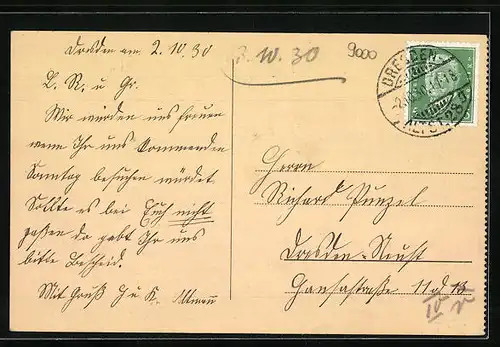 Dresden am 2.10.30
3.10.30
9000
L. R. u Gr.
Wir würden uns freuen
wenn Ihr uns kommenden
Sonntag besuchen würdet
Sollte es bei Euch nicht
paßen da gebt Ihr uns
bitte Bescheid.
Mit Gruß H u K.
DRESDEN-
ALTST. 28
Herrn
Richard Punzel
Dresden-Neust
Hansastraße 11 d 13
IV